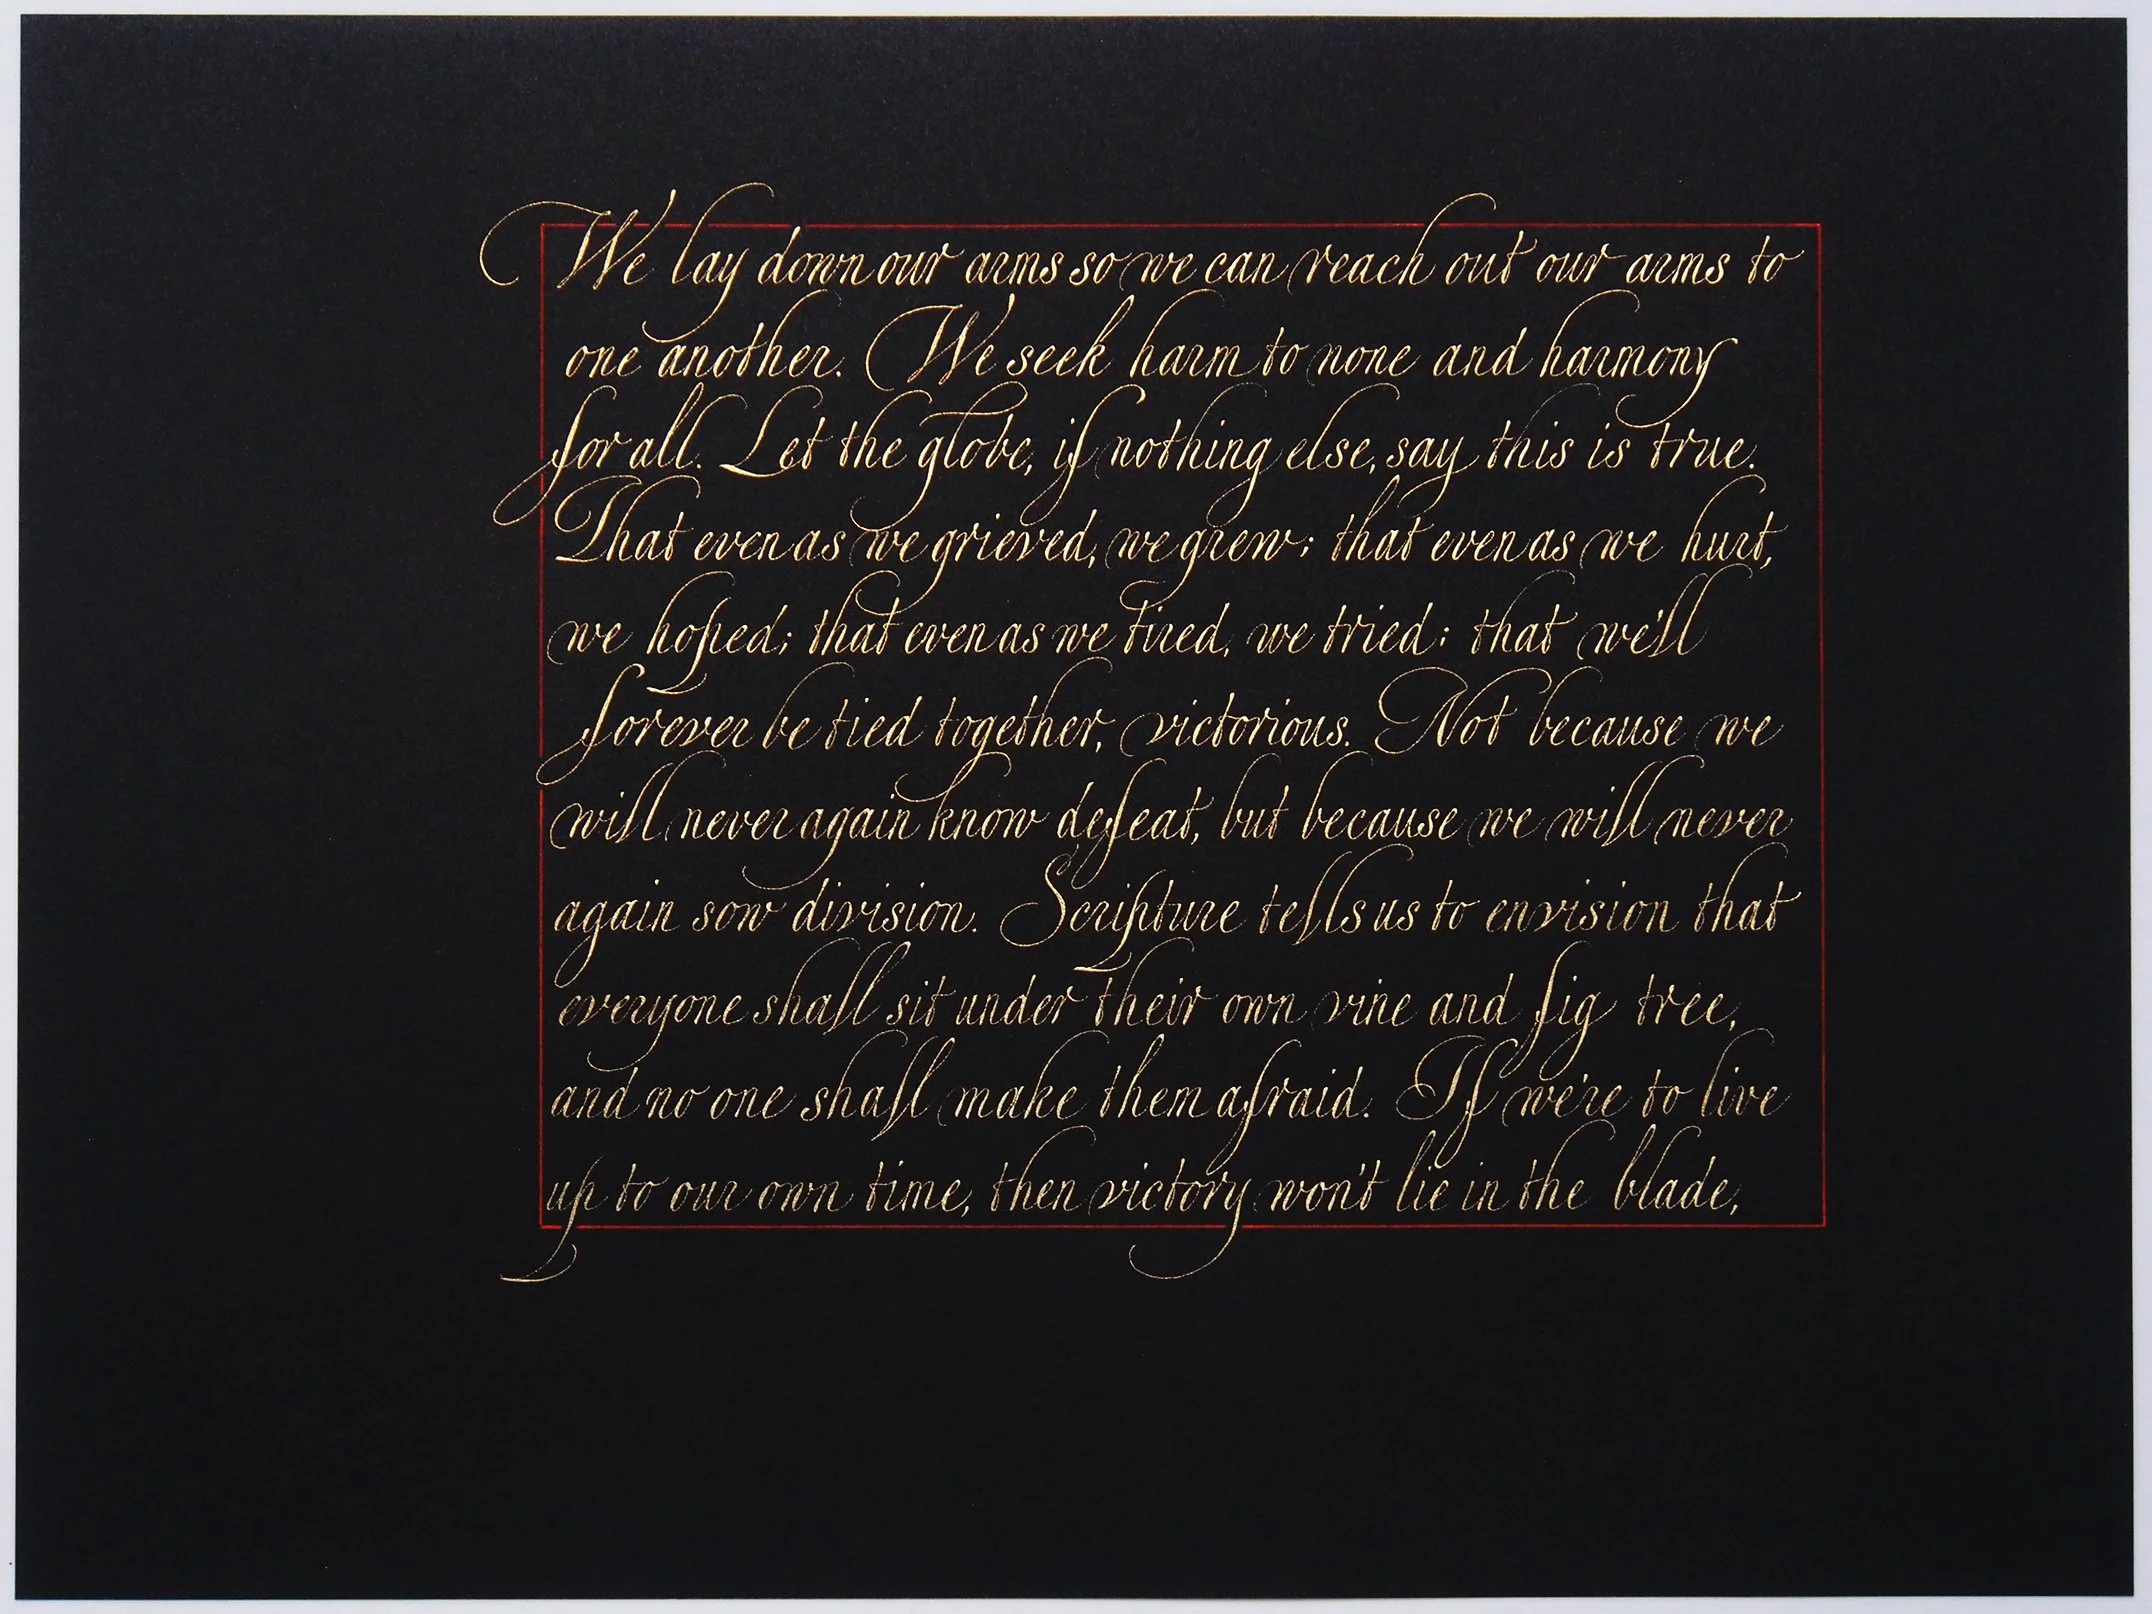 We lay down our arms so we can reach out our arms to
one another. We seek harm to none and harmony
for all. Let the globe, if nothing else, say this is true.
That even as we grieved, we grew; that even as we hurt,
we hoped; that even as we tired, we tried; that we'll
forever be tied together, victorious. Not because we
will never again know defeat, but because we will never
again sow division. Scripture tells us to envision that
everyone shall sit under their own vine and fig tree,
and no one shall make them afraid. If we're to live
up to our own time, then victory won't lie in the blade,